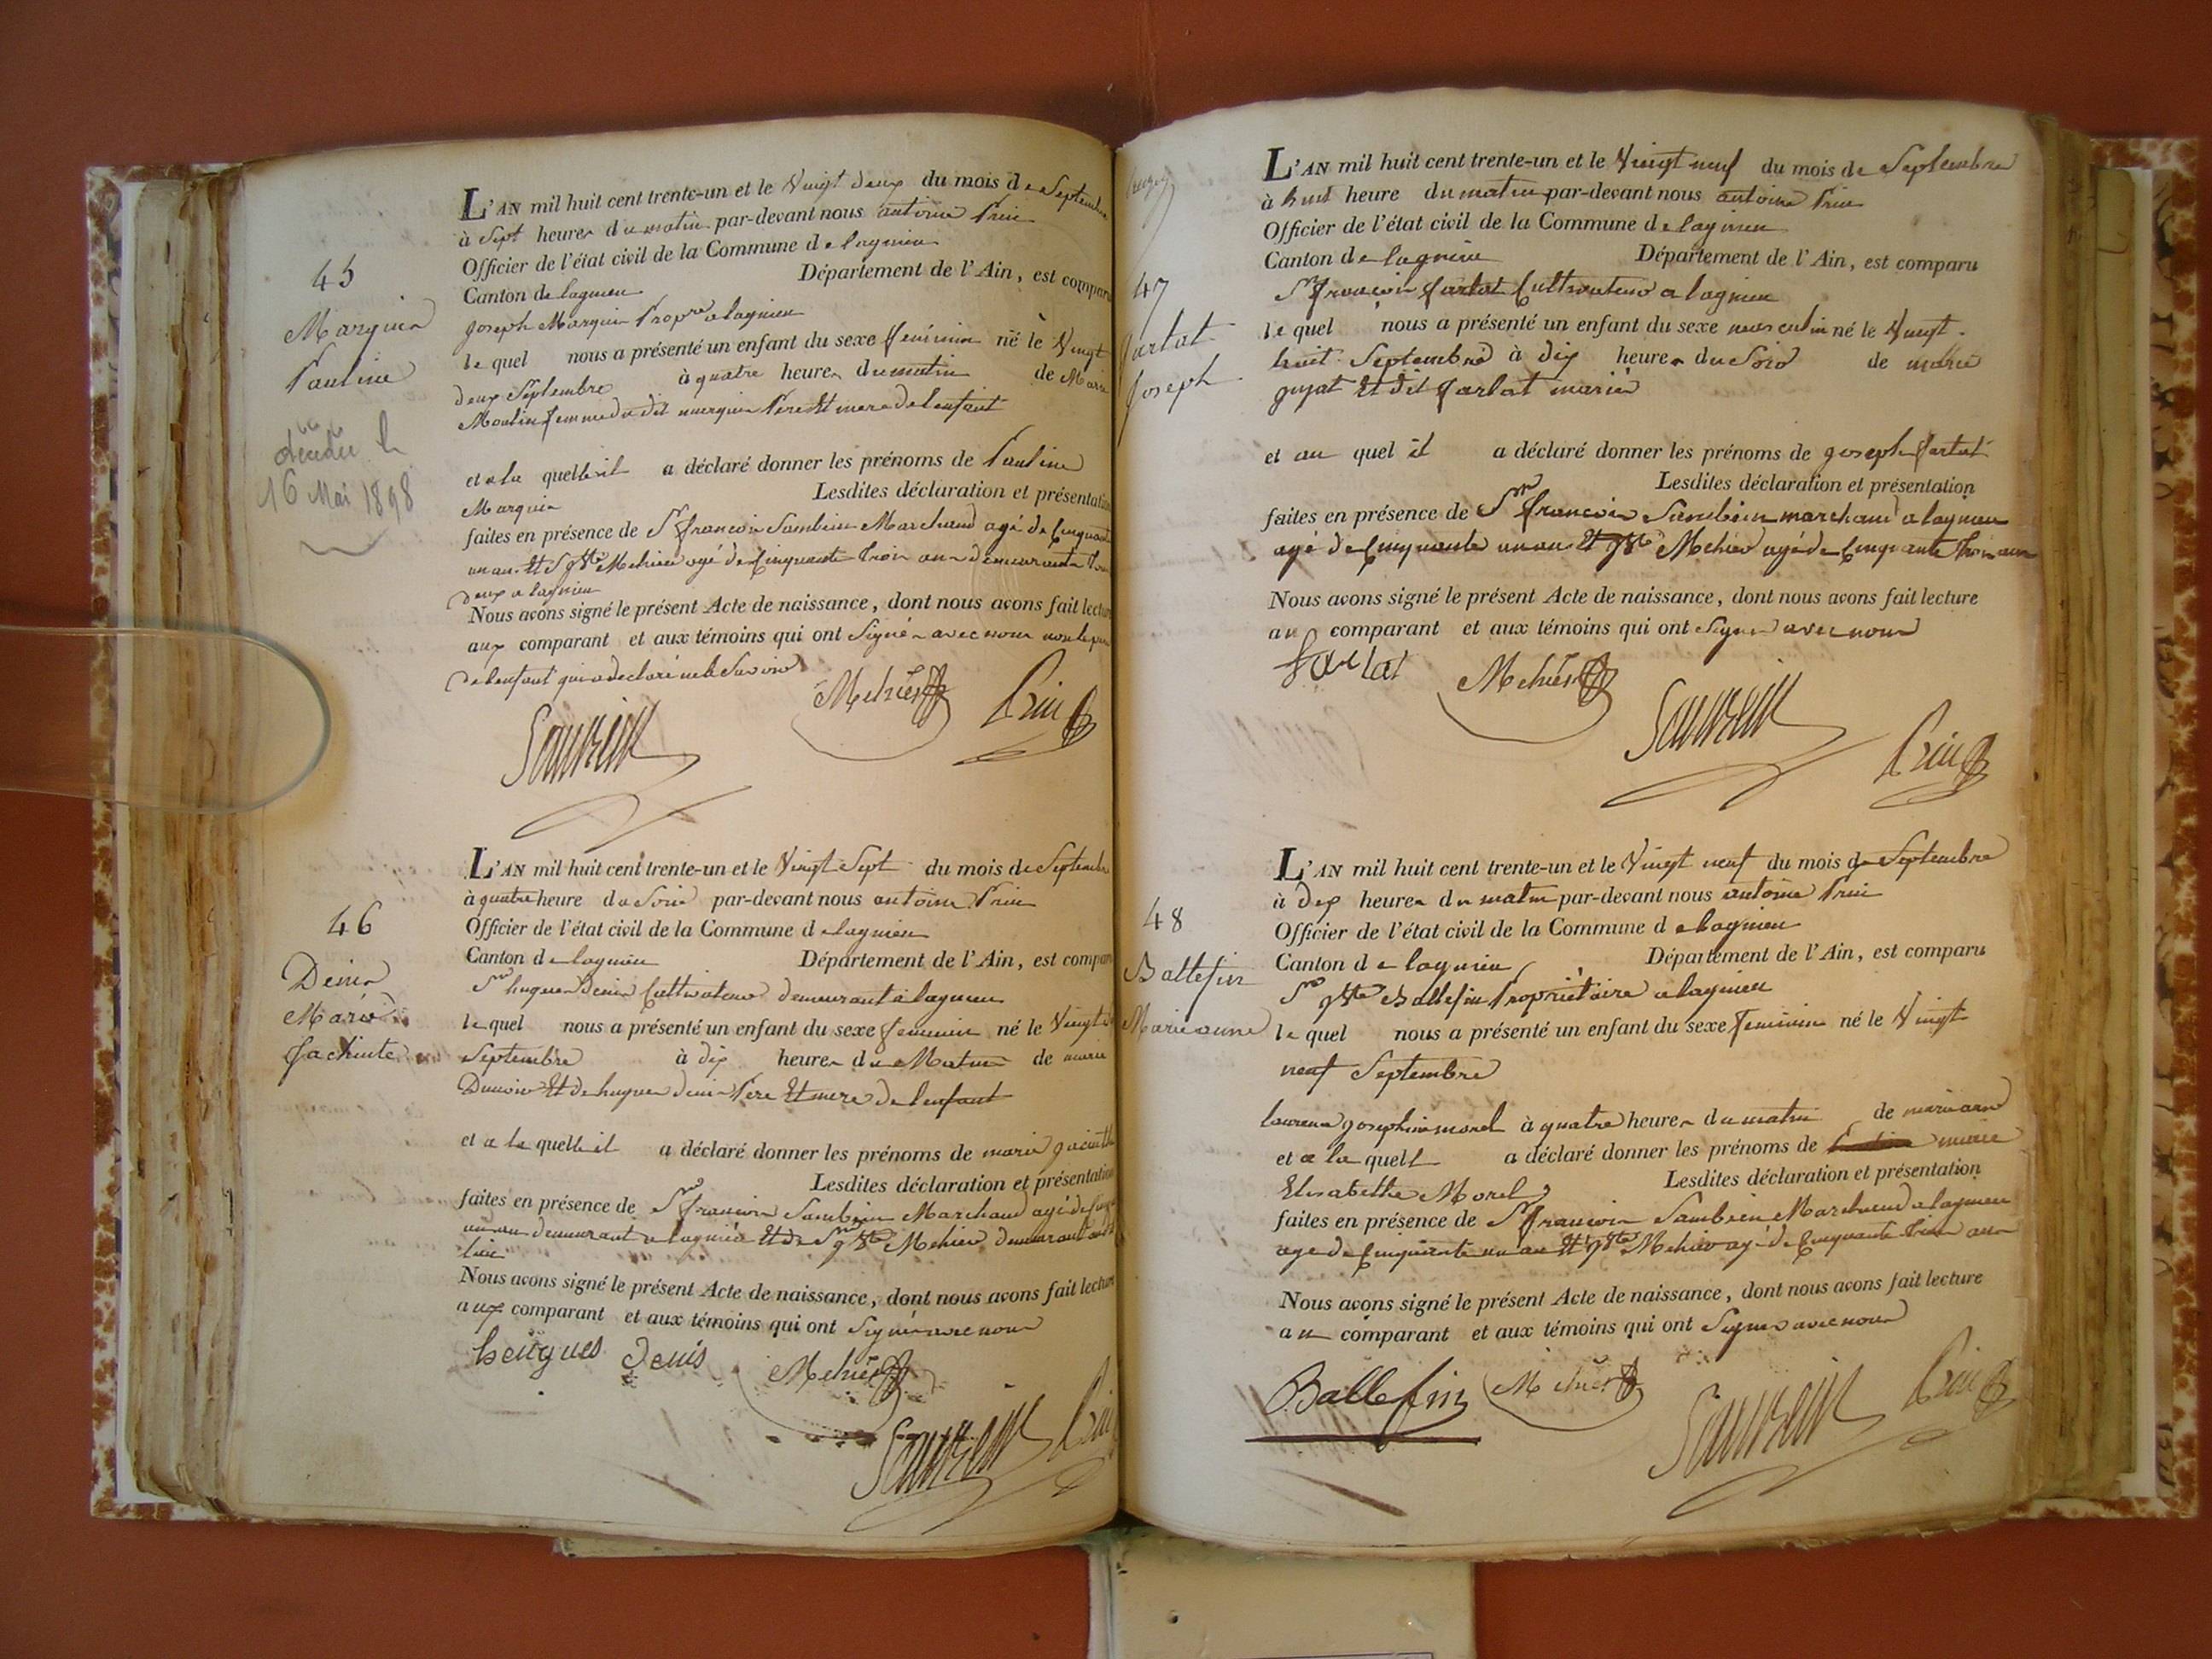 45
Marguin
Pauline
décédée le
16 Mai 1898
L'AN mil huit cent trente-un et le Vingt deux du mois de Septembre
à Sept heures du matin par-devant nous antoine Prin
Officier de l'état civil de la Commune de lagnieu
Canton de lagnieu Département de l'Ain, est comparu
joseph Marguin Propre a lagnieu
le quel nous a présenté un enfant du sexe feminin né le Vingt
deux Septembre à quatre heures du matin de Marie
Moulin femme du dit marguin Pere Et mere de lenfant
et a la quelle il a déclaré donner les prénoms de Pauline
Marguin Lesdites déclaration et présentation
faites en présence de Sr francois Sambin Marchand agé de Cinquante
un an Et Sr jbte Mehier agé de Cinquante trois ans demeurants tous
deux a lagnieu
Nous avons signé le présent Acte de naissance, dont nous avons fait lecture
aux comparant et aux témoins qui ont Signés avec nous non le pere
de lenfant qui a declaré ne le Savoir
Mehier Prin
46
Denis
Marie
Jachinte
L'AN mil huit cent trente-un et le Vingt Sept du mois de Septembre
à quatre heure du Soir par-devant nous antoine Prin
Officier de l'état civil de la Commune de lagnieu
Canton de lagnieu Département de l'Ain, est comparu
Sr hugues Denis Cultivateur demeurant a lagnieu
le quel nous a présenté un enfant du sexe feminin né le Vingt
Septembre à dix heures du Matin de marie
Et de hugues denis Pere Et mere de lenfant
et a la quelle il a déclaré donner les prénoms de marie
Lesdites déclaration et présentation
faites en présence de Sr francois Sambin Marchand agé de
un an demeurant a lagnieu Et de Sr jbte Mehier demeurant
lieu
Nous avons signé le présent Acte de naissance, dont nous avons fait lecture
aux comparant et aux témoins qui ont Signé avec nous
heugues denis Mehier
47
Joseph
L'AN mil huit cent trente-un et le Vingt neuf du mois de Septembre
à huit heure du matin par-devant nous antoine Prin
Officier de l'état civil de la Commune de lagnieu
Canton de lagnieu Département de l'Ain, est comparu
Sr francois farlat Cultivateur a lagnieu
le quel nous a présenté un enfant du sexe masculin né le Vingt
huit Septembre à dix heures du Soir de marie
guyat Et dit farlat mariés
et au quel il a déclaré donner les prénoms de joseph farlat
Lesdites déclaration et présentation
faites en présence de Sr francois Sambin marchand a lagnieu
agé de Cinquante un an Et jbte Mehier agé de Cinquante trois ans
Nous avons signé le présent Acte de naissance, dont nous avons fait lecture
au comparant et aux témoins qui ont Signé avec nous
farlat Mehier
Prin
48
Ballefin
Marieanne
L'AN mil huit cent trente-un et le Vingt neuf du mois de Septembre
à dix heures du matin par-devant nous antoine Prin
Officier de l'état civil de la Commune de lagnieu
Canton de lagnieu Département de l'Ain, est comparu
Sr jbte Ballefin Propriétaire a lagnieu
le quel nous a présenté un enfant du sexe feminin né le Vingt
neuf Septembre
josephine morel à quatre heures du matin de
et a la quelle a déclaré donner les prénoms de marie
Elisabethe Morel Lesdites déclaration et présentation
faites en présence de Sr francois Sambin Marchand a lagnieu
agé de Cinquante un an Et jbte Mehier agé de Cinquante trois ans
Nous avons signé le présent Acte de naissance, dont nous avons fait lecture
au comparant et aux témoins qui ont Signé avec nous
Ballefin Mehier Prin